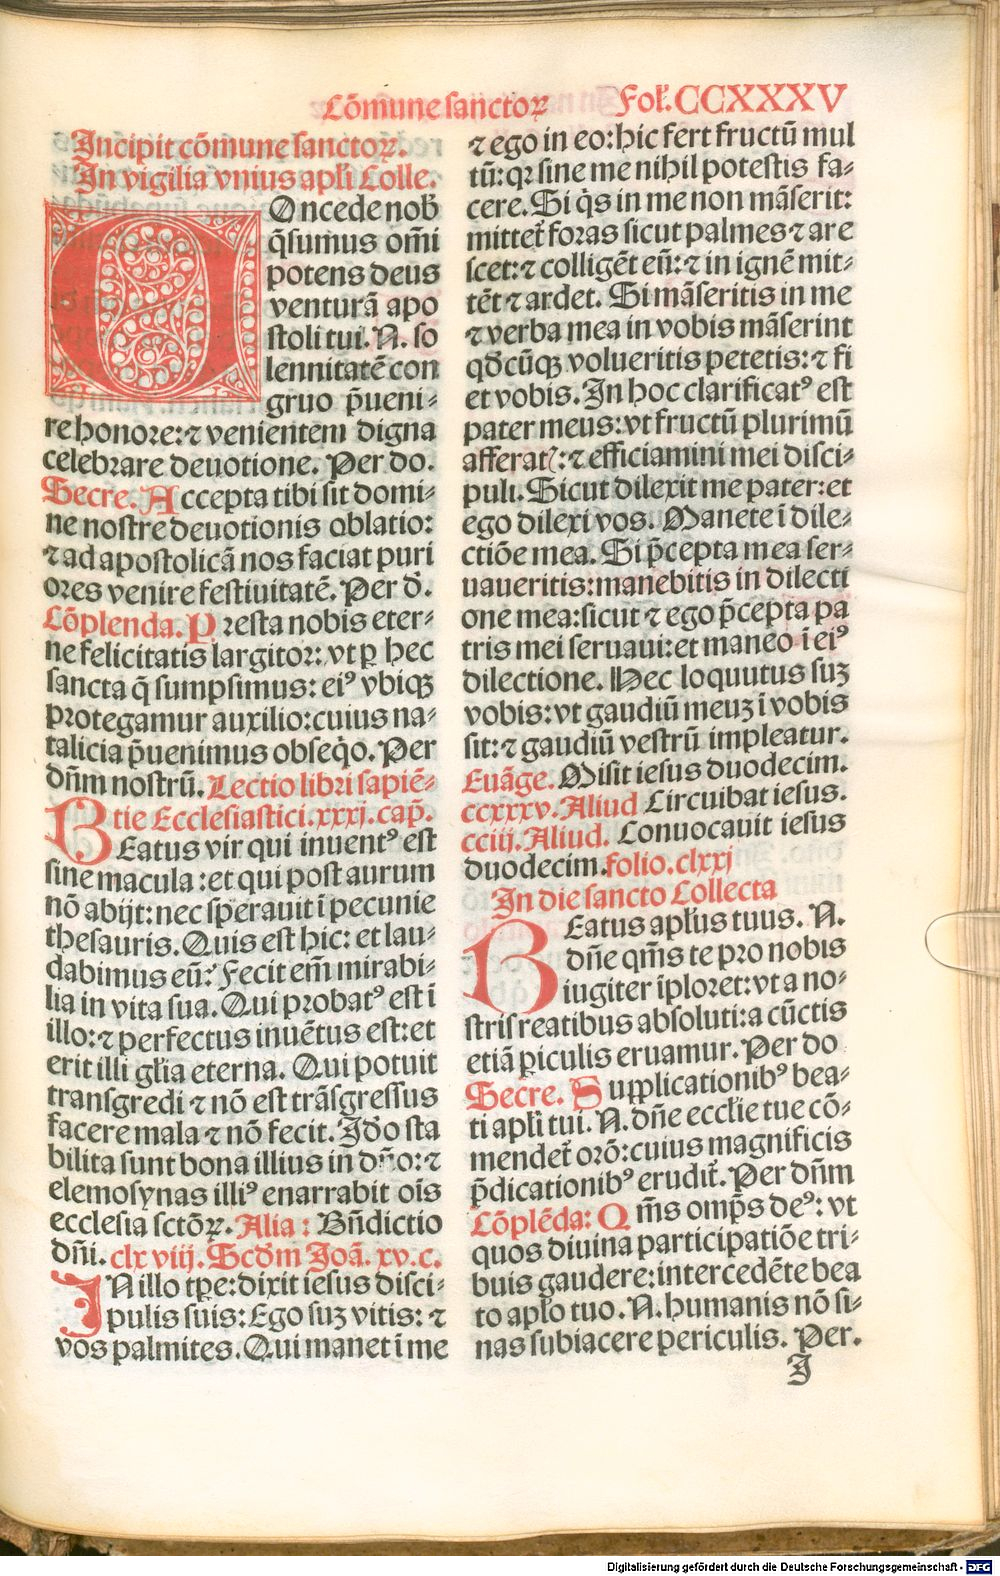 Cōmune sanctoꝝ Fol'. CCXXXV
Incipit cōmune sanctoꝝ.
In vigilia vnius apl'i Colle.
COncede nob̄
q̄sumus om̄i
potens deus
venturā apo
stoli tui. N. so
lennitatē con
gruo p̄ueni⸗
re honore: ⁊ venientem digna
celebrare deuotione. Per do.
Secre. Accepta tibi sit domi⸗
ne nostre deuotionis oblatio:
⁊ ad apostolicā nos faciat puri
ores venire festiuitatē. Per d̄.
Cōplenda. Presta nobis eter⸗
ne felicitatis largitor: vt ꝑ hec
sancta q̄ sumpsimus: eiꝰ vbiqꝫ
protegamur auxilio: cuius na⸗
talicia p̄uenimus obseq̇o. Per
dn̄m nostrū. Lectio libri sapiē⸗
tie Ecclesiastici. xxxj. cap̄.
BEatus vir qui inuentꝰ est
sine macula: et qui post aurum
nō abijt: nec sperauit ī pecunie
thesauris. Quis est hic: et lau⸗
dabimus eū: Fecit em̄ mirabi⸗
lia in vita sua. Qui probatꝰ est ī
illo: ⁊ perfectus inuētus est: et
erit illi gl'ia eterna. Qui potuit
transgredi ⁊ nō est trāsgressus
facere mala ⁊ nō fecit. Id̄o sta
bilita sunt bona illius in dn̄o: ⁊
elemosynas illiꝰ enarrabit oīs
ecclesia sctōꝝ. Alia: Bn̄dictio
dn̄i. clxviij. Scd̄m Joā. xv. c.
IN illo tꝑe: dixit iesus disci⸗
pulis suis: Ego suꝫ vitis: ⁊
vos palmites. Qui manet ī me
⁊ ego in eo: hic fert fructū mul
tū: qꝛ sine me nihil potestis fa⸗
cere. Si q̇s in me non māserit:
mittet̄ foras sicut palmes ⁊ are
scet: ⁊ colligēt eū: ⁊ in ignē mit⸗
tēt ⁊ ardet. Si māseritis in me
⁊ verba mea in vobis māserint
qd̄cūqꝫ volueritis petetis: ⁊ fi
et vobis. In hoc clarificatꝰ est
pater meus: vt fructū plurimū
afferatꝭ: ⁊ efficiamini mei disci⸗
puli. Sicut dilexit me pater: et
ego dilexi vos. Manete ī dile⸗
ctiōe mea. Si p̄cepta mea ser⸗
uaueritis: manebitis in dilecti
one mea: sicut ⁊ ego p̄cepta pa
tris mei seruaui: et maneo ī eiꝰ
dilectione. Hec loquutus suꝫ
vobis: vt gaudiū meuꝫ ī vobis
sit: ⁊ gaudiū vestrū impleatur.
Euāge. Misit iesus duodecim.
ccxxxv. Aliud Circuibat iesus.
cciij. Aliud. Conuocauit iesus
duodecim. folio. clxxj
In die sancto Collecta
BEatus apl'us tuus. N.
dn̄e qm̄s te pro nobis
iugiter īploret: vt a no⸗
stris reatibus absoluti: a cūctis
etiā ꝑiculis eruamur. Per do
Secre. Supplicationibꝰ bea⸗
ti apl'i tui. N. dn̄e eccl'ie tue cō⸗
mendet̄ orō: cuius magnificis
p̄dicationibꝰ erudit̄. Per dn̄m
Cōplēda: Qm̄s omp̄s deꝰ: vt
quos diuina participatiōe tri⸗
buis gaudere: intercedēte bea
to apl'o tuo. N. humanis nō si⸗
nas subiacere periculis. Per.
I
Digitalisierung gefördert durch die Deutsche Forschungsgemeinschaft - DFG